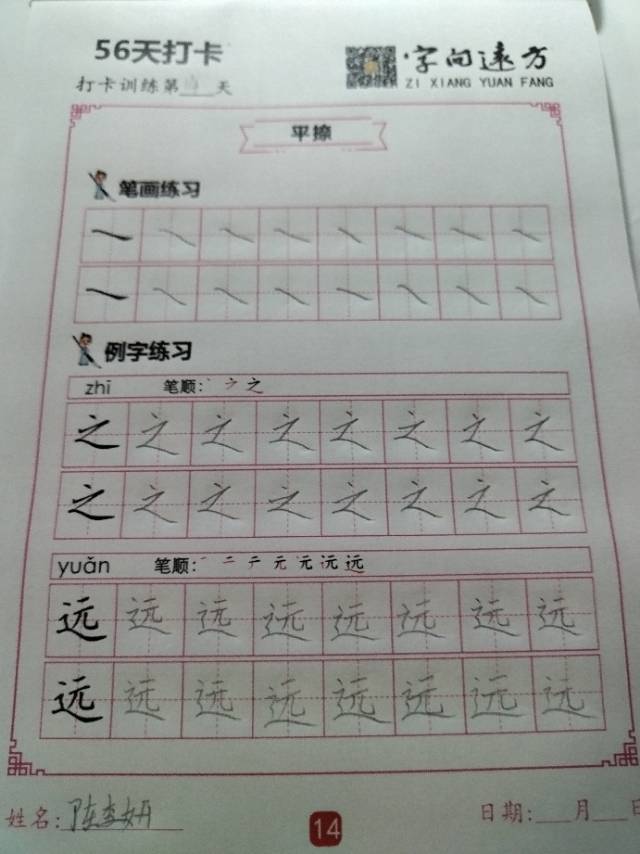 56天打卡
字向远方
打卡训练第 天
ZI XIANG YUAN FANG
平捺
笔画练习
例字练习
zhī 笔顺: 丶 ㇇ 之
之 之 之 之 之 之 之 之
之 之 之 之 之 之 之 之
yuǎn 笔顺: 一 二 テ 元 远 远
远 远 远 远 远 远 远 远
远 远 远 远 远 远 远 远
姓名: 陈 妍
日期: 月 日
14